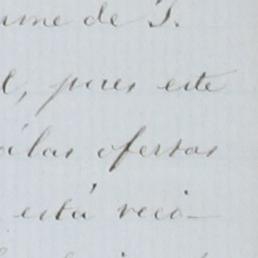 ume de S.
l, pues este
álas ofertas
está reci-